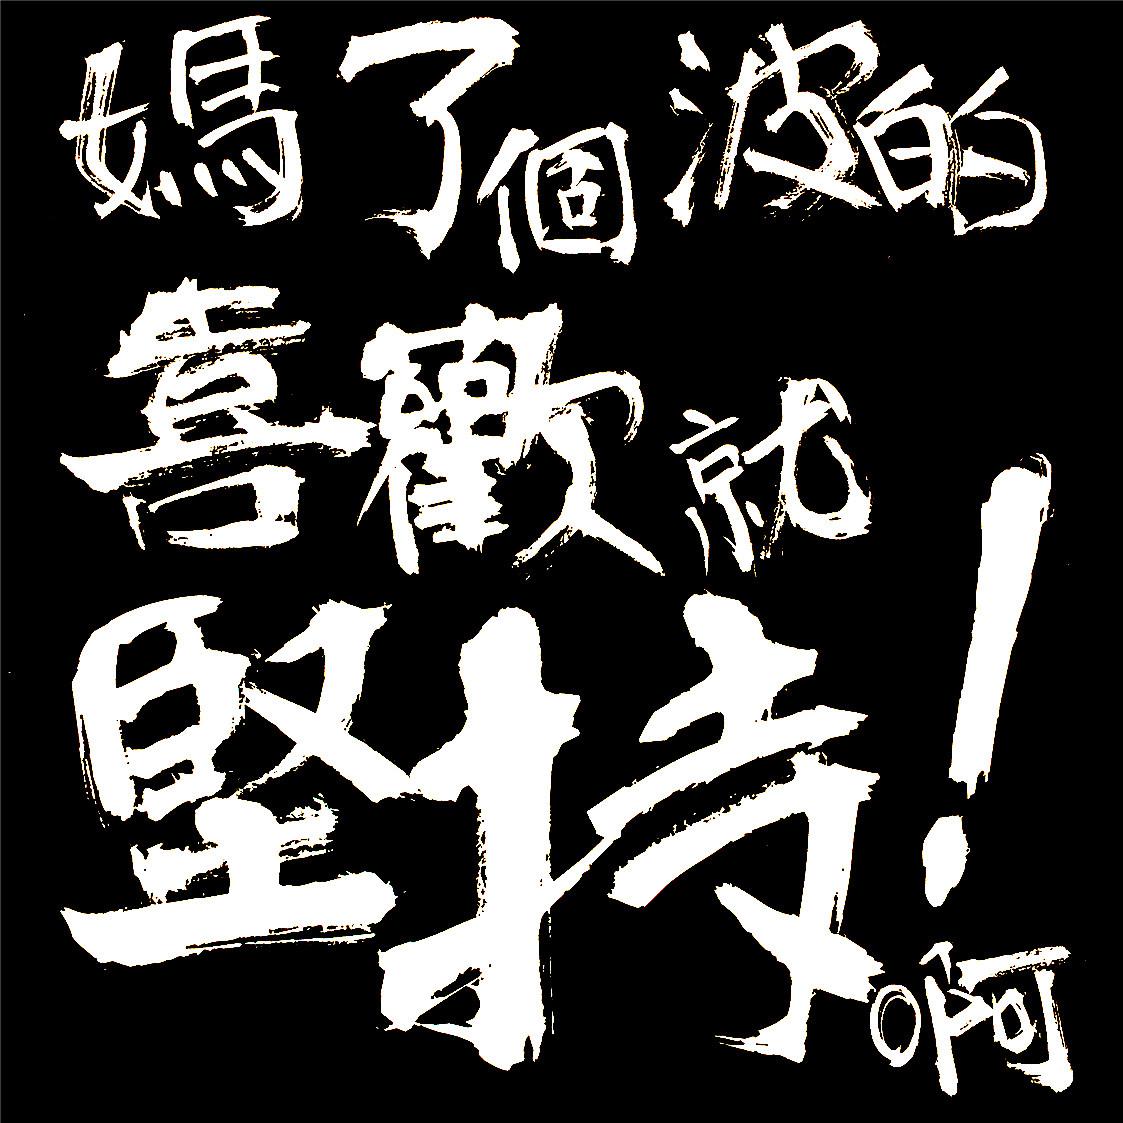 媽了個波的
喜歡就
堅持！
啊